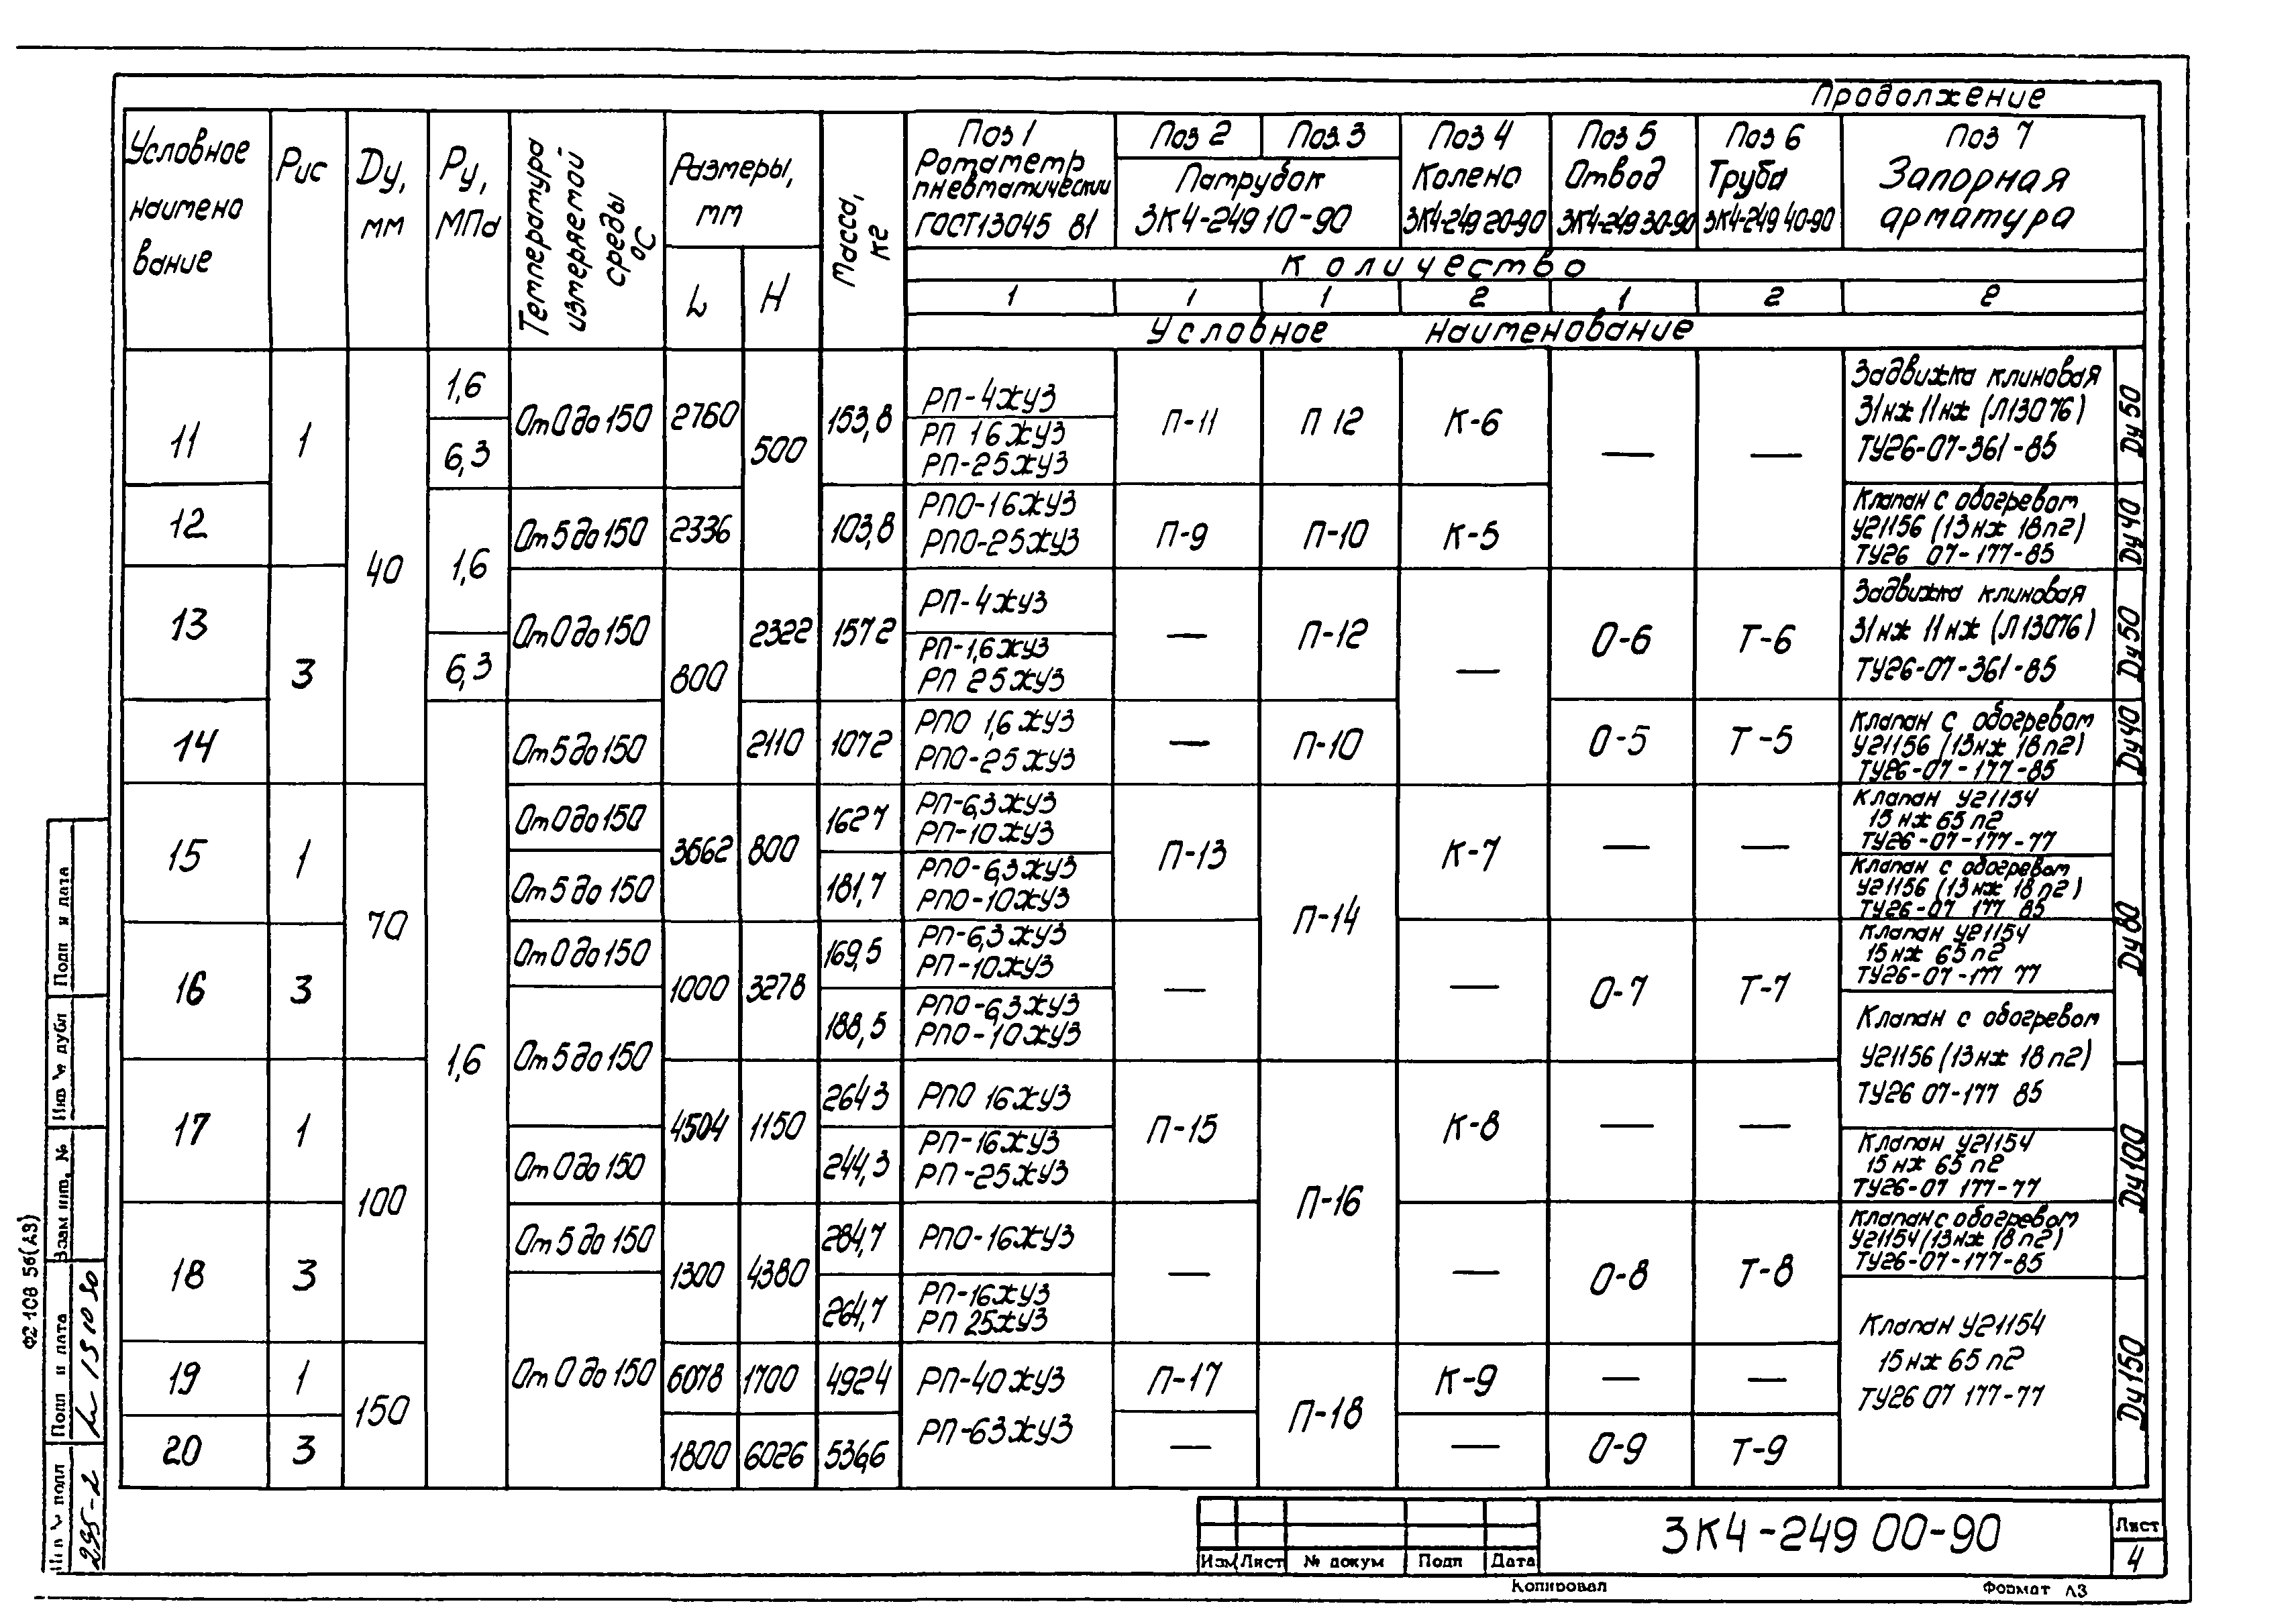 Продолжение
Условное наимено вание
Рис
Dу, мм
Ру, МПа
Температура измеряемой среды °С
Размеры, мм
L
H
Масса, кг
Поз 1 Ротаметр пневматический ГОСТ13045 81
Поз 2
Поз.3
Патрубок 3К4-249 10-90
Поз 4 Колено 3К4-249 20-90
Поз 5 Отвод 3К4-249 30-90
Поз 6 Труба 3К4-249 40-90
Поз 7 Запорная арматура
Количество
1 1 1 2 1 2 2
Условное наименование
11 1 40 1,6 От 0 до 150 2760 500 153,8 РП-4ЖУЗ П-11 П 12 К-6 — —
6,3 РП 16ЖУЗ
РП-25ЖУЗ
Задвижка клиновая
31нж 11нж (Л13076)
ТУ26-07-361-85
Dу 50
12 1,6 От 5 до 150 2336 103,8 РПО-16ЖУЗ П-9 П-10 К-5
РПО-25ЖУЗ
Клапан с обогревом
У21156 (13нж 18п2)
ТУ26 07-177-85
Dу 40
13 3 От 0 до 150 800 2322 1572 РП-4ЖУЗ — П-12 — О-6 Т-6
6,3 РП-1,6ЖУЗ
РП 25ЖУЗ
Задвижка клиновая
31нж 11нж (Л13076)
ТУ26-07-361-85
Dу 50
14 1,6 От 5 до 150 2110 1072 РПО 1,6ЖУЗ — П-10 О-5 Т-5
РПО-25ЖУЗ
Клапан с обогревом
У21156 (13нж 18п2)
ТУ26-07-177-85
Dу40
15 1 70 От 0 до 150 3662 800 1627 РП-6,3ЖУЗ П-13 П-14 К-7 — —
РП-10ЖУЗ
Клапан У21154
15нж 65п2
ТУ26-07-177-77
Dу 80
От 5 до 150 181,7 РПО-6,3ЖУЗ
РПО-10ЖУЗ
Клапан с обогревом
У21156 (13нж 18п2)
ТУ26-07 177 85
16 3 От 0 до 150 1000 3278 169,5 РП-6,3ЖУЗ — — О-7 Т-7
РП-10ЖУЗ
Клапан У21154
15нж 65п2
ТУ26-07-177 77
От 5 до 150 188,5 РПО-6,3ЖУЗ
РПО-10ЖУЗ
Клапан с обогревом
У21156 (13нж 18п2)
ТУ26 07-177 85
17 1 100 4504 1150 2643 РПО 16ЖУЗ П-15 П-16 К-8 — —
От 0 до 150 244,3 РП-16ЖУЗ
РП-25ЖУЗ
Клапан У21154
15нж 65п2
ТУ26-07 177-77
Dу100
18 3 От 5 до 150 1300 4380 284,7 РПО-16ЖУЗ — — О-8 Т-8
Клапан с обогревом
У21154 (13нж 18п2)
ТУ26-07-177-85
От 0 до 150 264,7 РП-16ЖУЗ
РП 25ЖУЗ
Клапан У21154
15нж 65п2
ТУ26 07 177-77
Dу150
19 1 150 6078 1700 4924 РП-40ЖУЗ П-17 П-18 К-9 — —
20 3 1800 6026 536,6 РП-63ЖУЗ — — О-9 Т-9
Изм Лист № докум Подп Дата
3К4-249 00-90
Лист
4
Копировал
Формат А3
Подп и дата
Инв № дубл
Взам инв. №
Подп и дата
Инв № подл
295-2
Ф2 108 5б(А3)